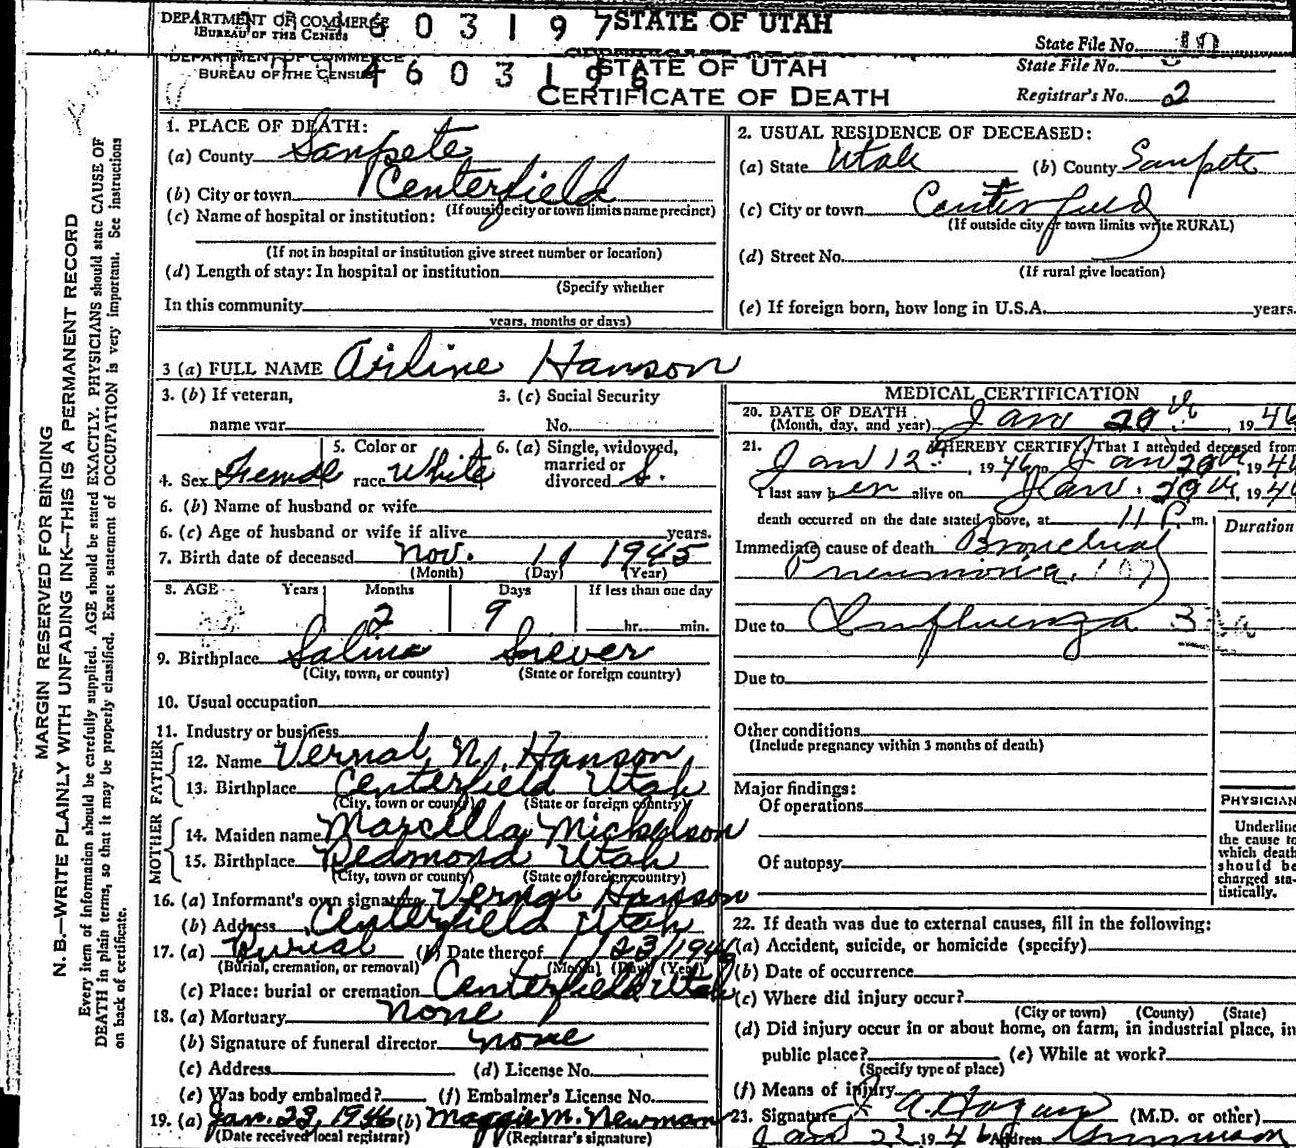 DEPARTMENT OF COMMERCE
BUREAU OF THE CENSUS
6 0 3 1 9 7
STATE OF UTAH
State File No. 10
DEPARTMENT OF COMMERCE
BUREAU OF THE CENSUS
4 6 0 3 1 9 6
STATE OF UTAH
CERTIFICATE OF DEATH
State File No.
Registrar's No. 2
MARGIN RESERVED FOR BINDING
N. B.—WRITE PLAINLY WITH UNFADING INK—THIS IS A PERMANENT RECORD
Every item of information should be carefully supplied. AGE should be stated EXACTLY. PHYSICIANS should state CAUSE OF
DEATH in plain terms, so that it may be properly classified. Exact statement of OCCUPATION is very important. See instructions
on back of certificate.
1. PLACE OF DEATH:
(a) County Sanpete
(b) City or town Centerfield
(If outside city or town limits name precinct)
(c) Name of hospital or institution:
(If not in hospital or institution give street number or location)
(d) Length of stay: In hospital or institution
(Specify whether
In this community
years, months or days)
2. USUAL RESIDENCE OF DECEASED:
(a) State Utah (b) County Sanpete
(c) City or town Centerfield
(If outside city or town limits write RURAL)
(d) Street No.
(If rural give location)
(e) If foreign born, how long in U.S.A. years.
3 (a) FULL NAME Airline Hanson
3. (b) If veteran,
name war
3. (c) Social Security
No.
4. Sex Femal
5. Color or
race White
6. (a) Single, widowed,
married or
divorced S.
6. (b) Name of husband or wife
6. (c) Age of husband or wife if alive years.
7. Birth date of deceased Nov. 11 1945
(Month) (Day) (Year)
8. AGE Years Months Days If less than one day
2 9 hr. min.
9. Birthplace Salina Sevier
(City, town, or county) (State or foreign country)
10. Usual occupation
11. Industry or business
FATHER
12. Name Vernal N. Hanson
13. Birthplace Centerfield Utah
(City, town or county) (State or foreign country)
MOTHER
14. Maiden name Marcella Mickelson
15. Birthplace Redmond Utah
(City, town or county) (State or foreign country)
16. (a) Informant's own signature Vernal Hanson
(b) Address Centerfield Utah
17. (a) Burial (b) Date thereof 1/23/1946
(Burial, cremation, or removal) (Month) (Day) (Year)
(c) Place: burial or cremation Centerfield Utah
18. (a) Mortuary none
(b) Signature of funeral director none
(c) Address (d) License No.
(e) Was body embalmed? (f) Embalmer's License No.
19. (a) Jan. 23, 1946 (b) Maggie M. Newman
(Date received local registrar) (Registrar's signature)
MEDICAL CERTIFICATION
20. DATE OF DEATH
(Month, day, and year) Jan 20th, 1946
21. I HEREBY CERTIFY, That I attended deceased from
Jan 12, 1946 to Jan 20th, 1946
I last saw h er alive on Jan. 20th, 1946
death occurred on the date stated above, at 11 P. m.
Duration
Immediate cause of death Bronchial
Pneumonia 107
Due to Influenza 33a
Due to
Other conditions
(Include pregnancy within 3 months of death)
Major findings:
Of operations
Of autopsy
PHYSICIAN
Underline
the cause to
which death
should be
charged sta-
tistically.
22. If death was due to external causes, fill in the following:
(a) Accident, suicide, or homicide (specify)
(b) Date of occurrence
(c) Where did injury occur?
(City or town) (County) (State)
(d) Did injury occur in or about home, on farm, in industrial place, in
public place? (e) While at work?
(Specify type of place)
(f) Means of injury
23. Signature A. Hagan (M.D. or other)
Jan 23 1946 Address Gunnison